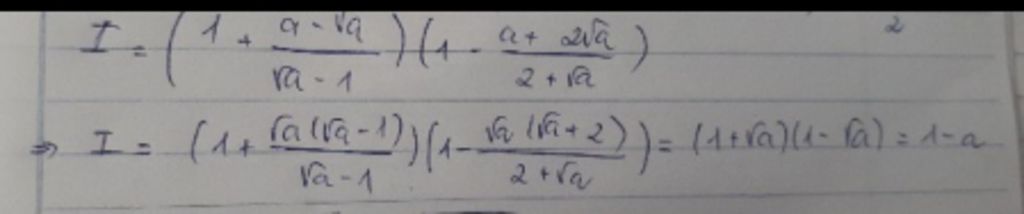 I = (1 + (a - √a)/(√a - 1))(1 - (a + 2√a)/(2 + √a)) 2
⇒ I = (1 + (√a(√a - 1))/(√a - 1))(1 - (√a(√a + 2))/(2 + √a)) = (1 + √a)(1 - √a) = 1 - a